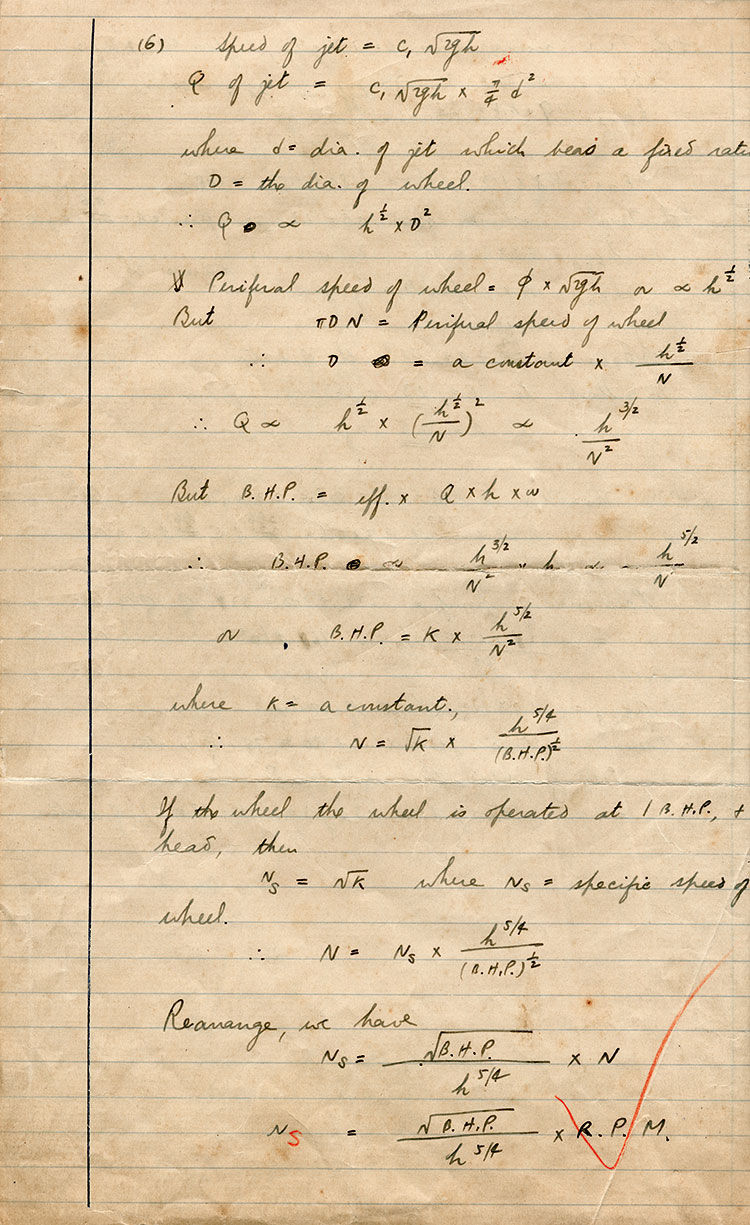 (6) Speed of jet = C₁ √2gh
Q of jet = C₁ √2gh × π/4 d²
where d = dia. of jet which bears a fixed ratio
D = the dia. of wheel.
∴ Q ∝ h^½ × D²
Periferal speed of wheel = φ × √2gh or ∝ h^½
But πDN = Periferal speed of wheel
∴ D = a constant × h^½/N
∴ Q ∝ h^½ × (h^½/N)² ∝ h^3/2/N²
But B.H.P. = eff. × Q × h × w
∴ B.H.P. ∝ h^3/2/N² × h ∝ h^5/2/N²
or B.H.P. = K × h^5/2/N²
where K = a constant.,
∴ N = √K × h^5/4/(B.H.P.)^½
If the wheel the wheel is operated at 1 B.H.P., +
head, then
N_S = √K where N_S = specific speed of
wheel.
∴ N = N_S × h^5/4/(B.H.P.)^½
Rearrange, we have
N_S = √B.H.P./h^5/4 × N
N_S = √B.H.P./h^5/4 × R.P.M.